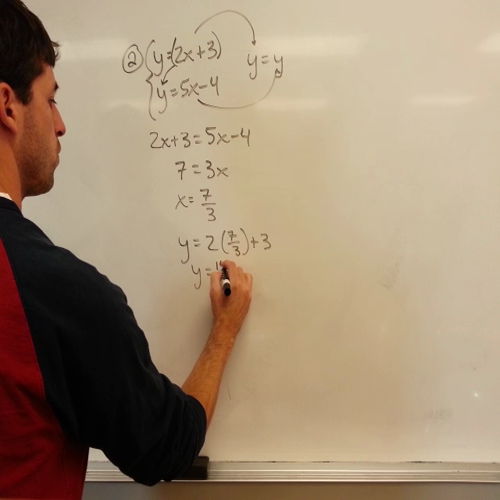 ② y=(2x+3) y=y
y=5x-4
2x+3=5x-4
7=3x
x=7/3
y=2(7/3)+3
y=